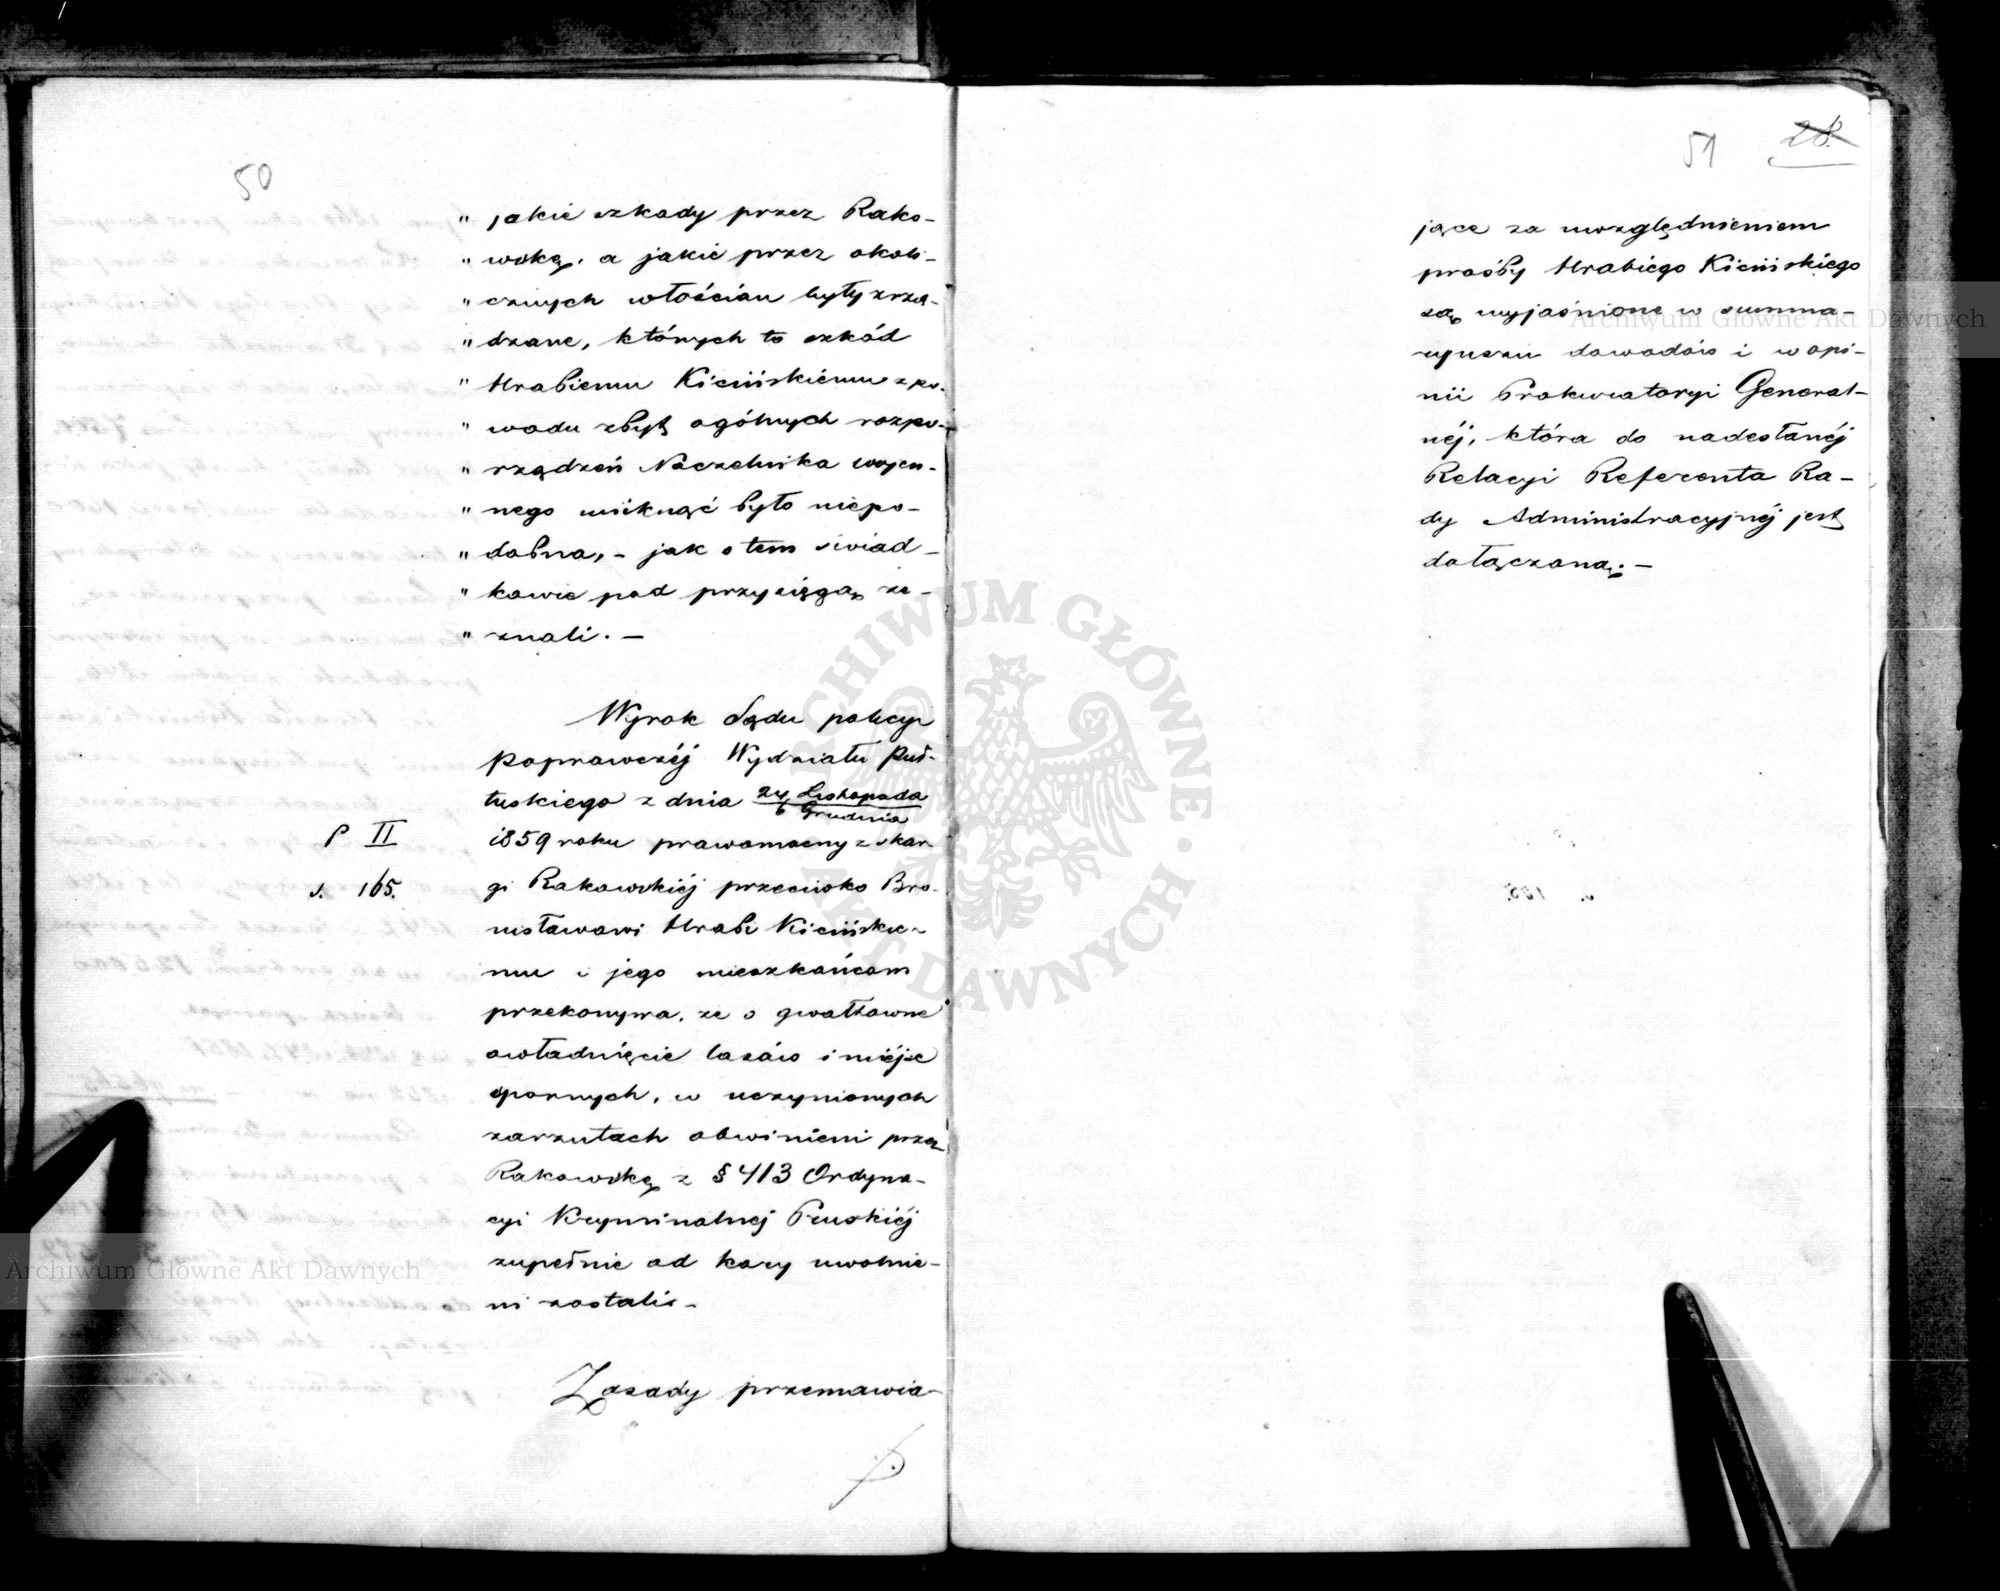 50
" jakie szkody przez Rako-
" wską, a jakie przez okoli-
" cznych włościan były zrzą-
" dzane, których to szkód
" Hrabiemu Kicińskiému z po-
" wodu zbyt ogólnych rozpo-
" rządzeń Naczelnika wojen-
" nego uniknąć było niepo-
" dobna, - jak o tem świad-
" kowie pod przysięgą ze-
" znali. —
Wyrok Sądu policyi
poprawczéj Wydziału Puł-
tuskiego z dnia 24 Listopada
6 Grudnia
P II
1859 roku prawomocny z skar-
s. 165.
gi Rakowskiéj przeciwko Bro-
nisławowi Hrabi Kicińskie-
mu i jego mieszkańcom
przekonywa, że o gwałtowne
owładnięcie lasów i miéjsc
spornych, w uczynionych
zarzutach obwinieni przez
Rakowską z § 413 Ordyna-
cyi Kryminalnej Pruskiéj
zupełnie od kary uwolnie-
ni zostali. -
Zasady przemawia-
51 28.
jące za uwzględnieniem
prośby Hrabiégo Kicińskiégo
są wyjaśnione w summa-
ryuszu dowodów i w opi-
nii Prokuratoryi General-
néj, która do nadesłanéj
Relacyi Referenta Ra-
dy Administracyjnéj jest
dołączoną. —
Archiwum Główne Akt Dawnych
ARCHIWUM GŁÓWNE AKT DAWNYCH
Archiwum Główne Akt Dawnych